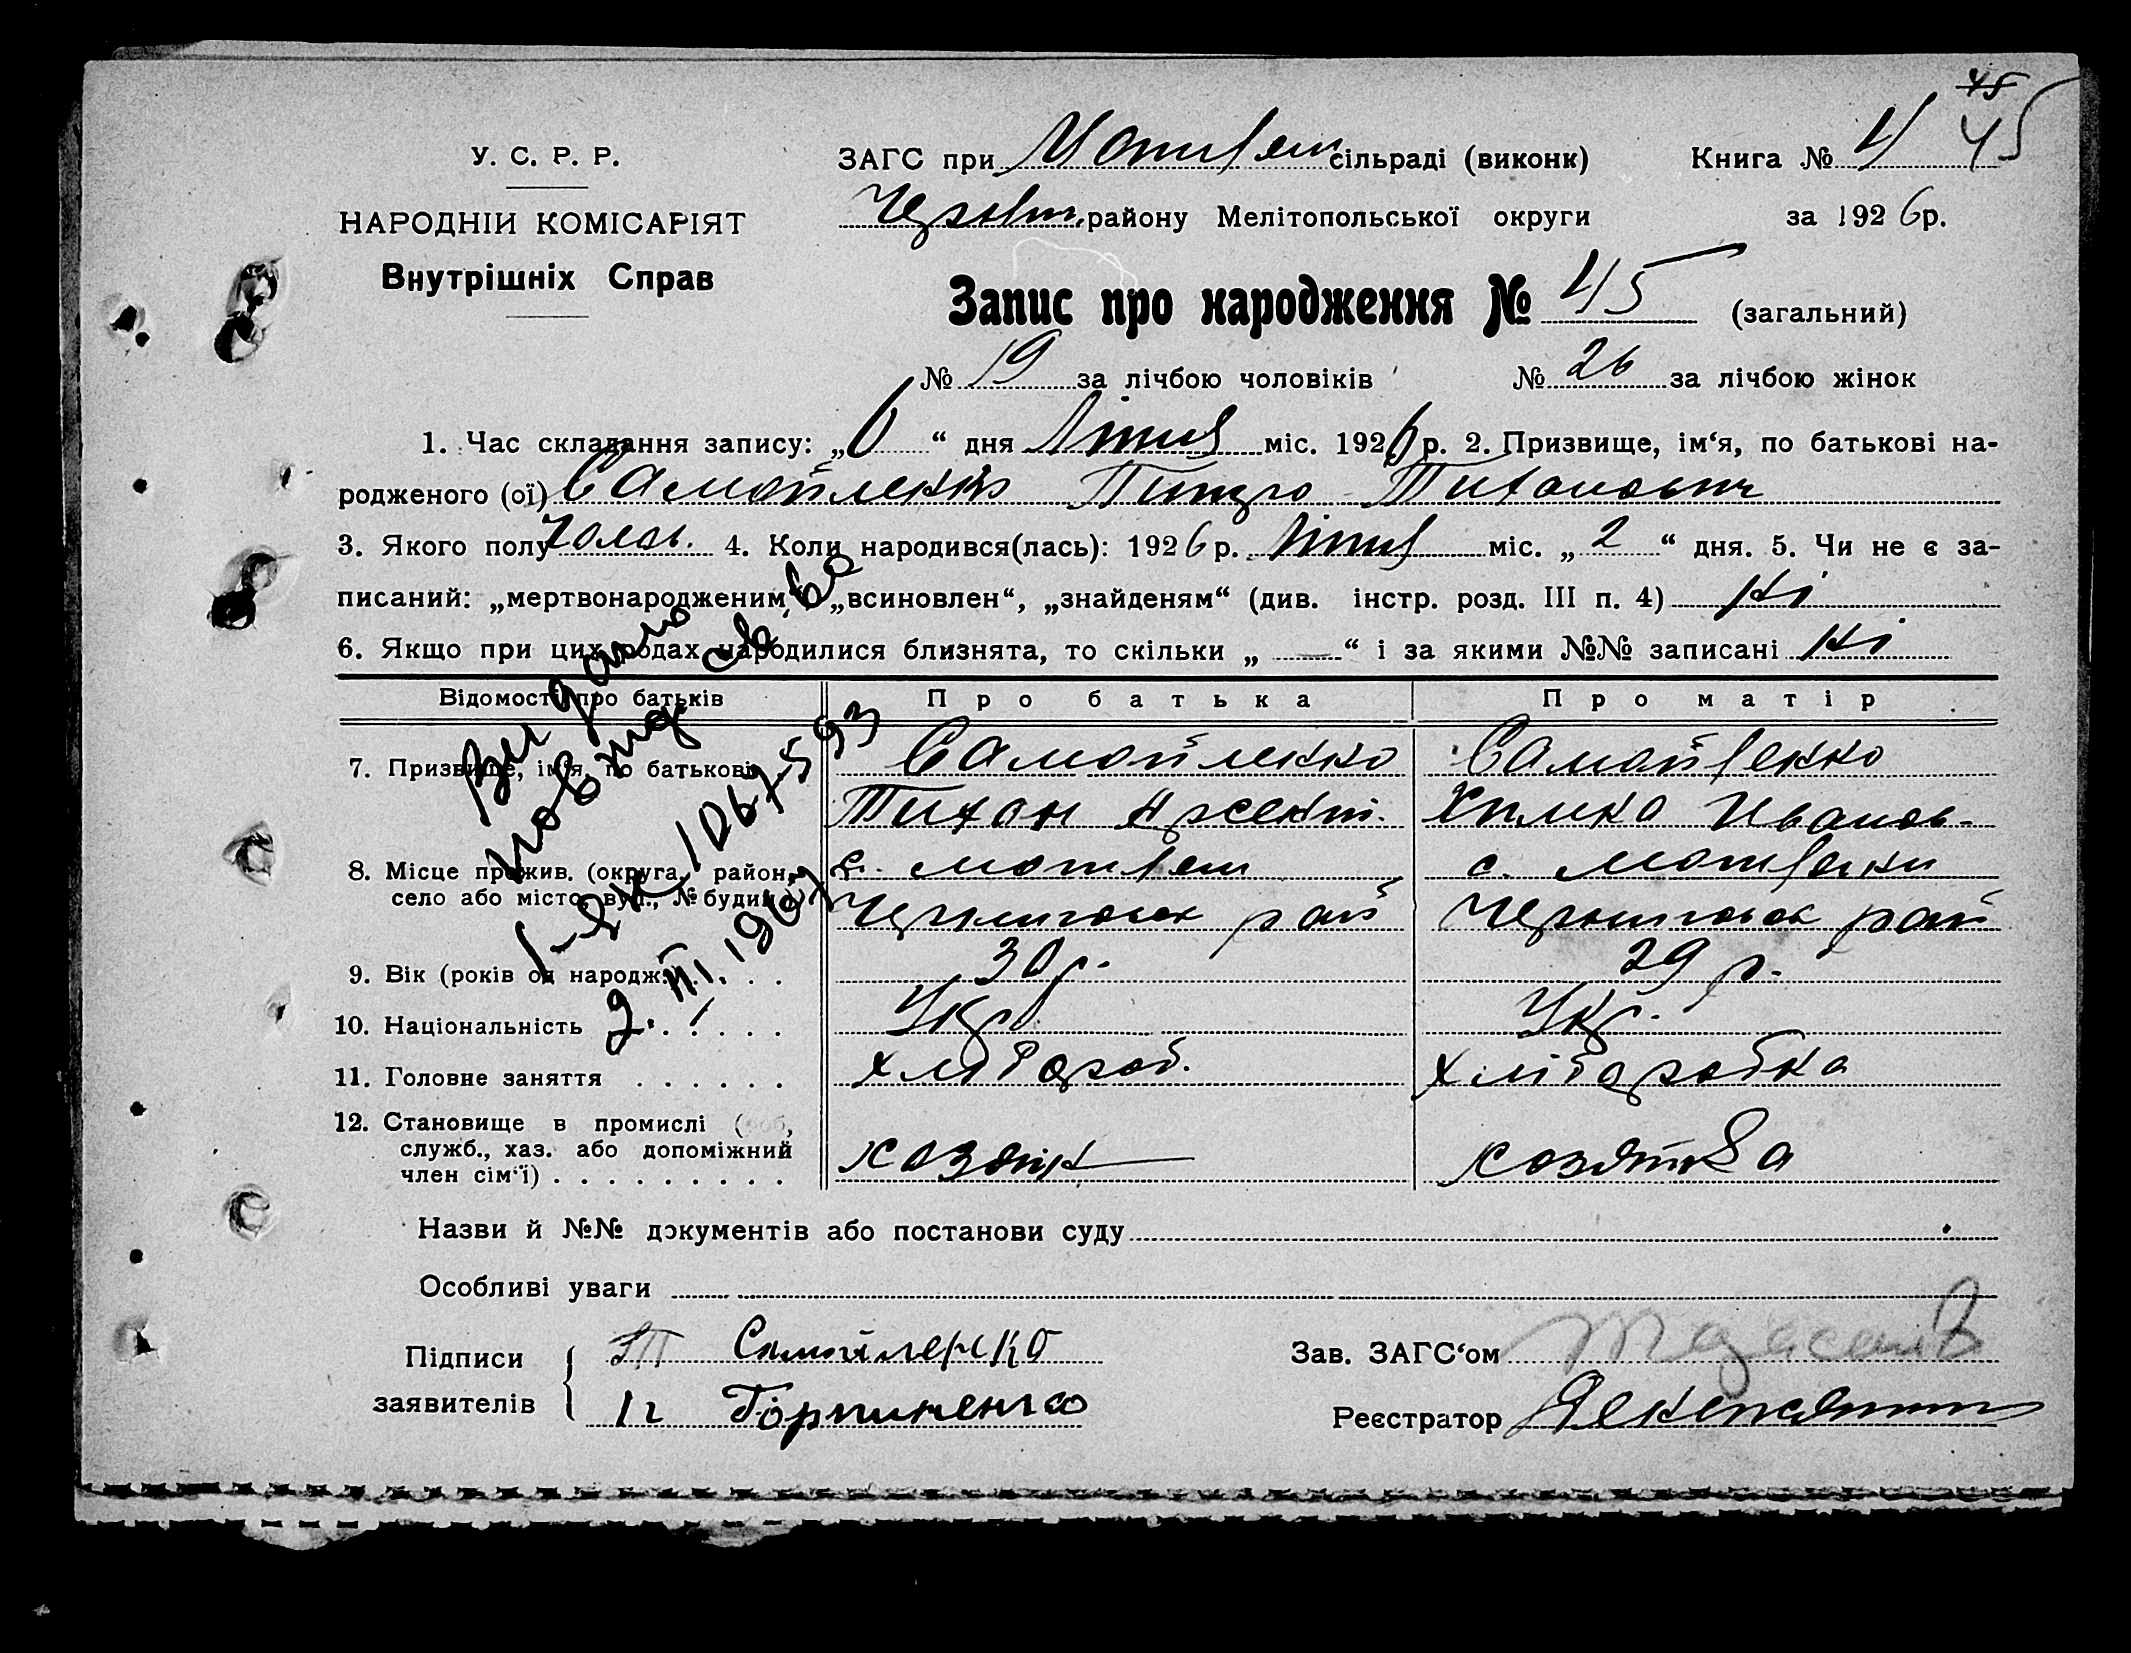 45
У. С. Р. Р.
ЗАГС при сільраді (виконк) Книга № 4 45
району Мелітопольської округи за 1926 р.
НАРОДНІЙ КОМІСАРІЯТ
Внутрішніх Справ
Запис про народження № 45 (загальний)
№ 19 за лічбою чоловіків № 26 за лічбою жінок
1. Час складання запису: „6“ дня міс. 1926 р. 2. Призвище, ім‘я, по батькові на-
родженого (ої) Самойленко Тиханович
3. Якого полу чолов. 4. Коли народився(лась): 1926 р. міс. „2“ дня. 5. Чи не є за-
писаний: „мертвонародженим“, „всиновлен“, „знайденям“ (див. інстр. розд. III п. 4) Ні
6. Якщо при цих родах народилися близнята, то скільки „ — “ і за якими №№ записані Ні
Відомості про батьків Про батька Про матір
7. Призвище, ім‘я, по батькові Самойленко Самойленко
Тихан Арсент. Иванов.
8. Місце прожив. (округа, район, с. с.
село або місто, вул., № будинк.) рай рай
9. Вік (років од народж.) 30 р. 29 р.
10. Національність Укр. Укр.
11. Головне заняття хлібороб. хліборобка
12. Становище в промислі (роб,
служб., хаз. або допоміжний хозяїн
член сім‘ї)
Видано
повтор. св-во
1-ЯК 1067593
Назви й №№ документів або постанови суду
Особливі уваги
Підписи Самойленко Зав. ЗАГС‘ом
заявителів Реєстратор